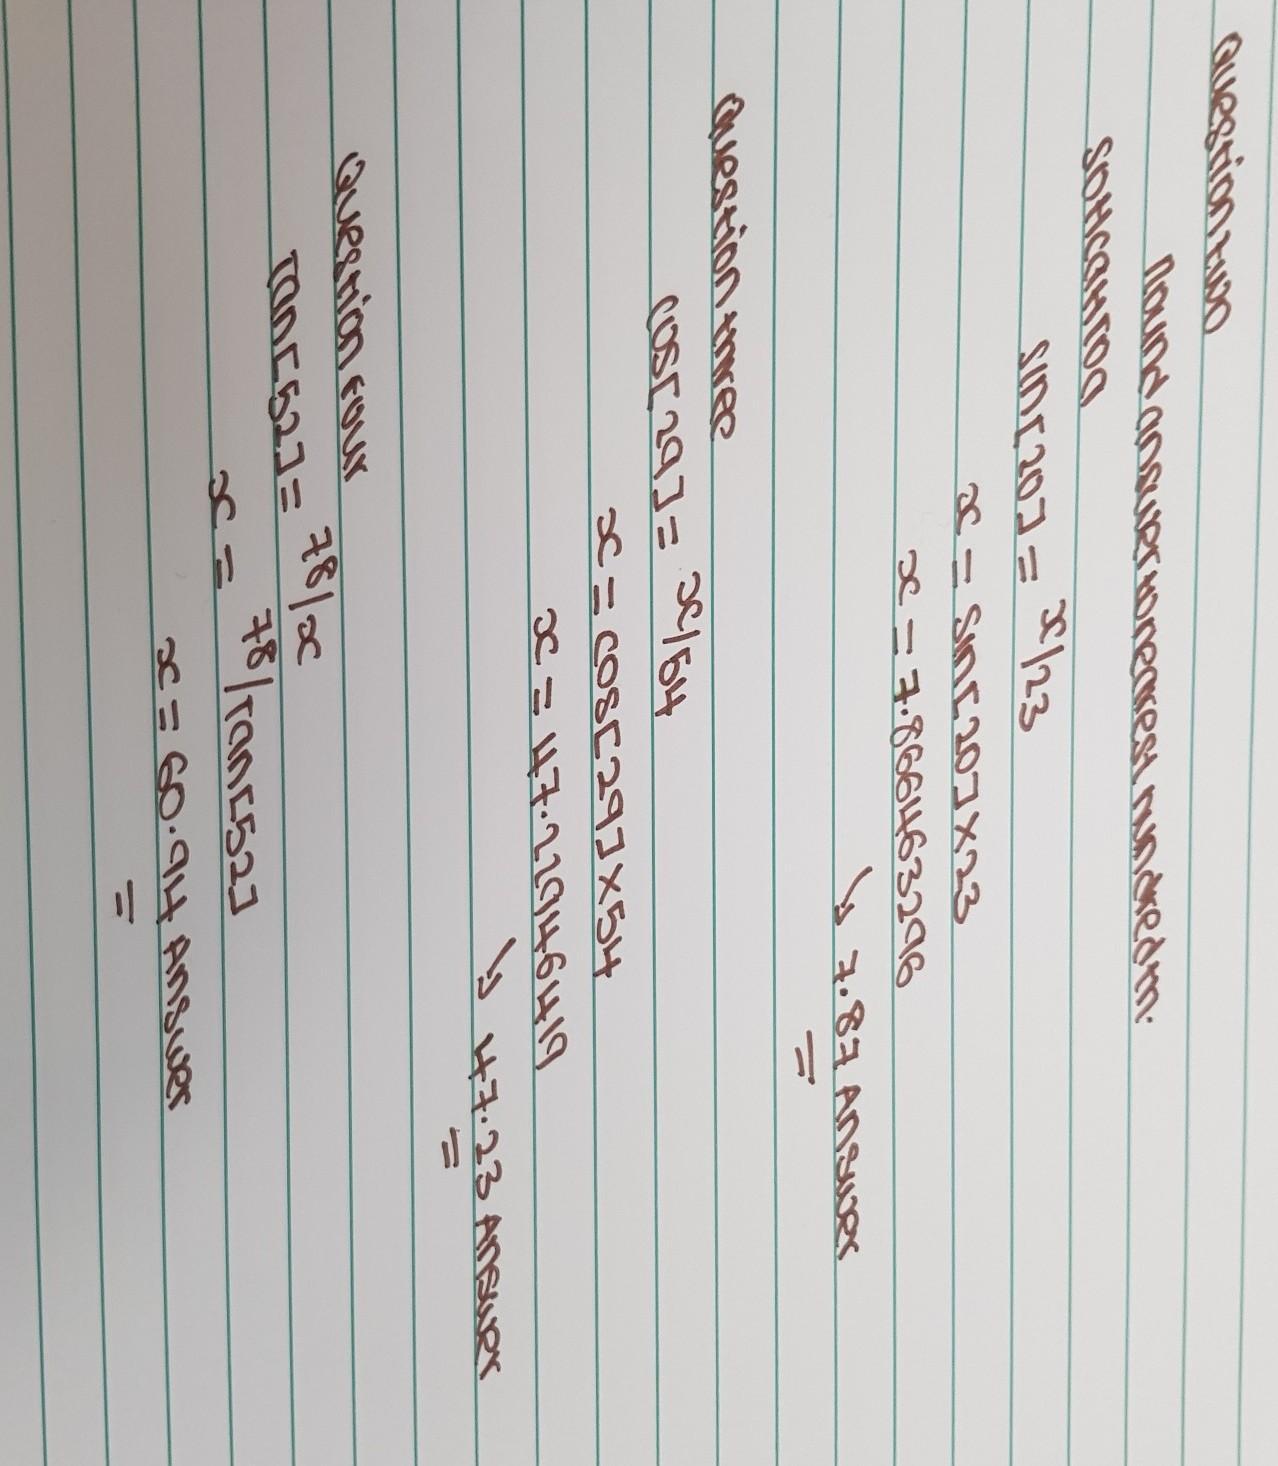 Question two
Round answer to nearest hundredth.
SOHCAHTOA
sin[20] = x/23
x = sin[20] x 23
x = 7.866463296
↘ 7.87 Answer
Question three
cos[29] = x/54
x = cos[29] x 54
x = 47.22946419
↘ 47.23 Answer
Question four
Tan[52] = 78/x
x = 78/Tan[52]
x = 60.94 Answer